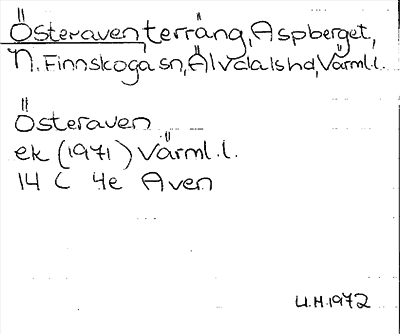 Österaven terräng, Aspberget,
N. Finnskoga sn, Älvdals hd, Värml.l.
Österaven
ek (1971) Värml.l.
14 C 4e Aven
U.H. 1972